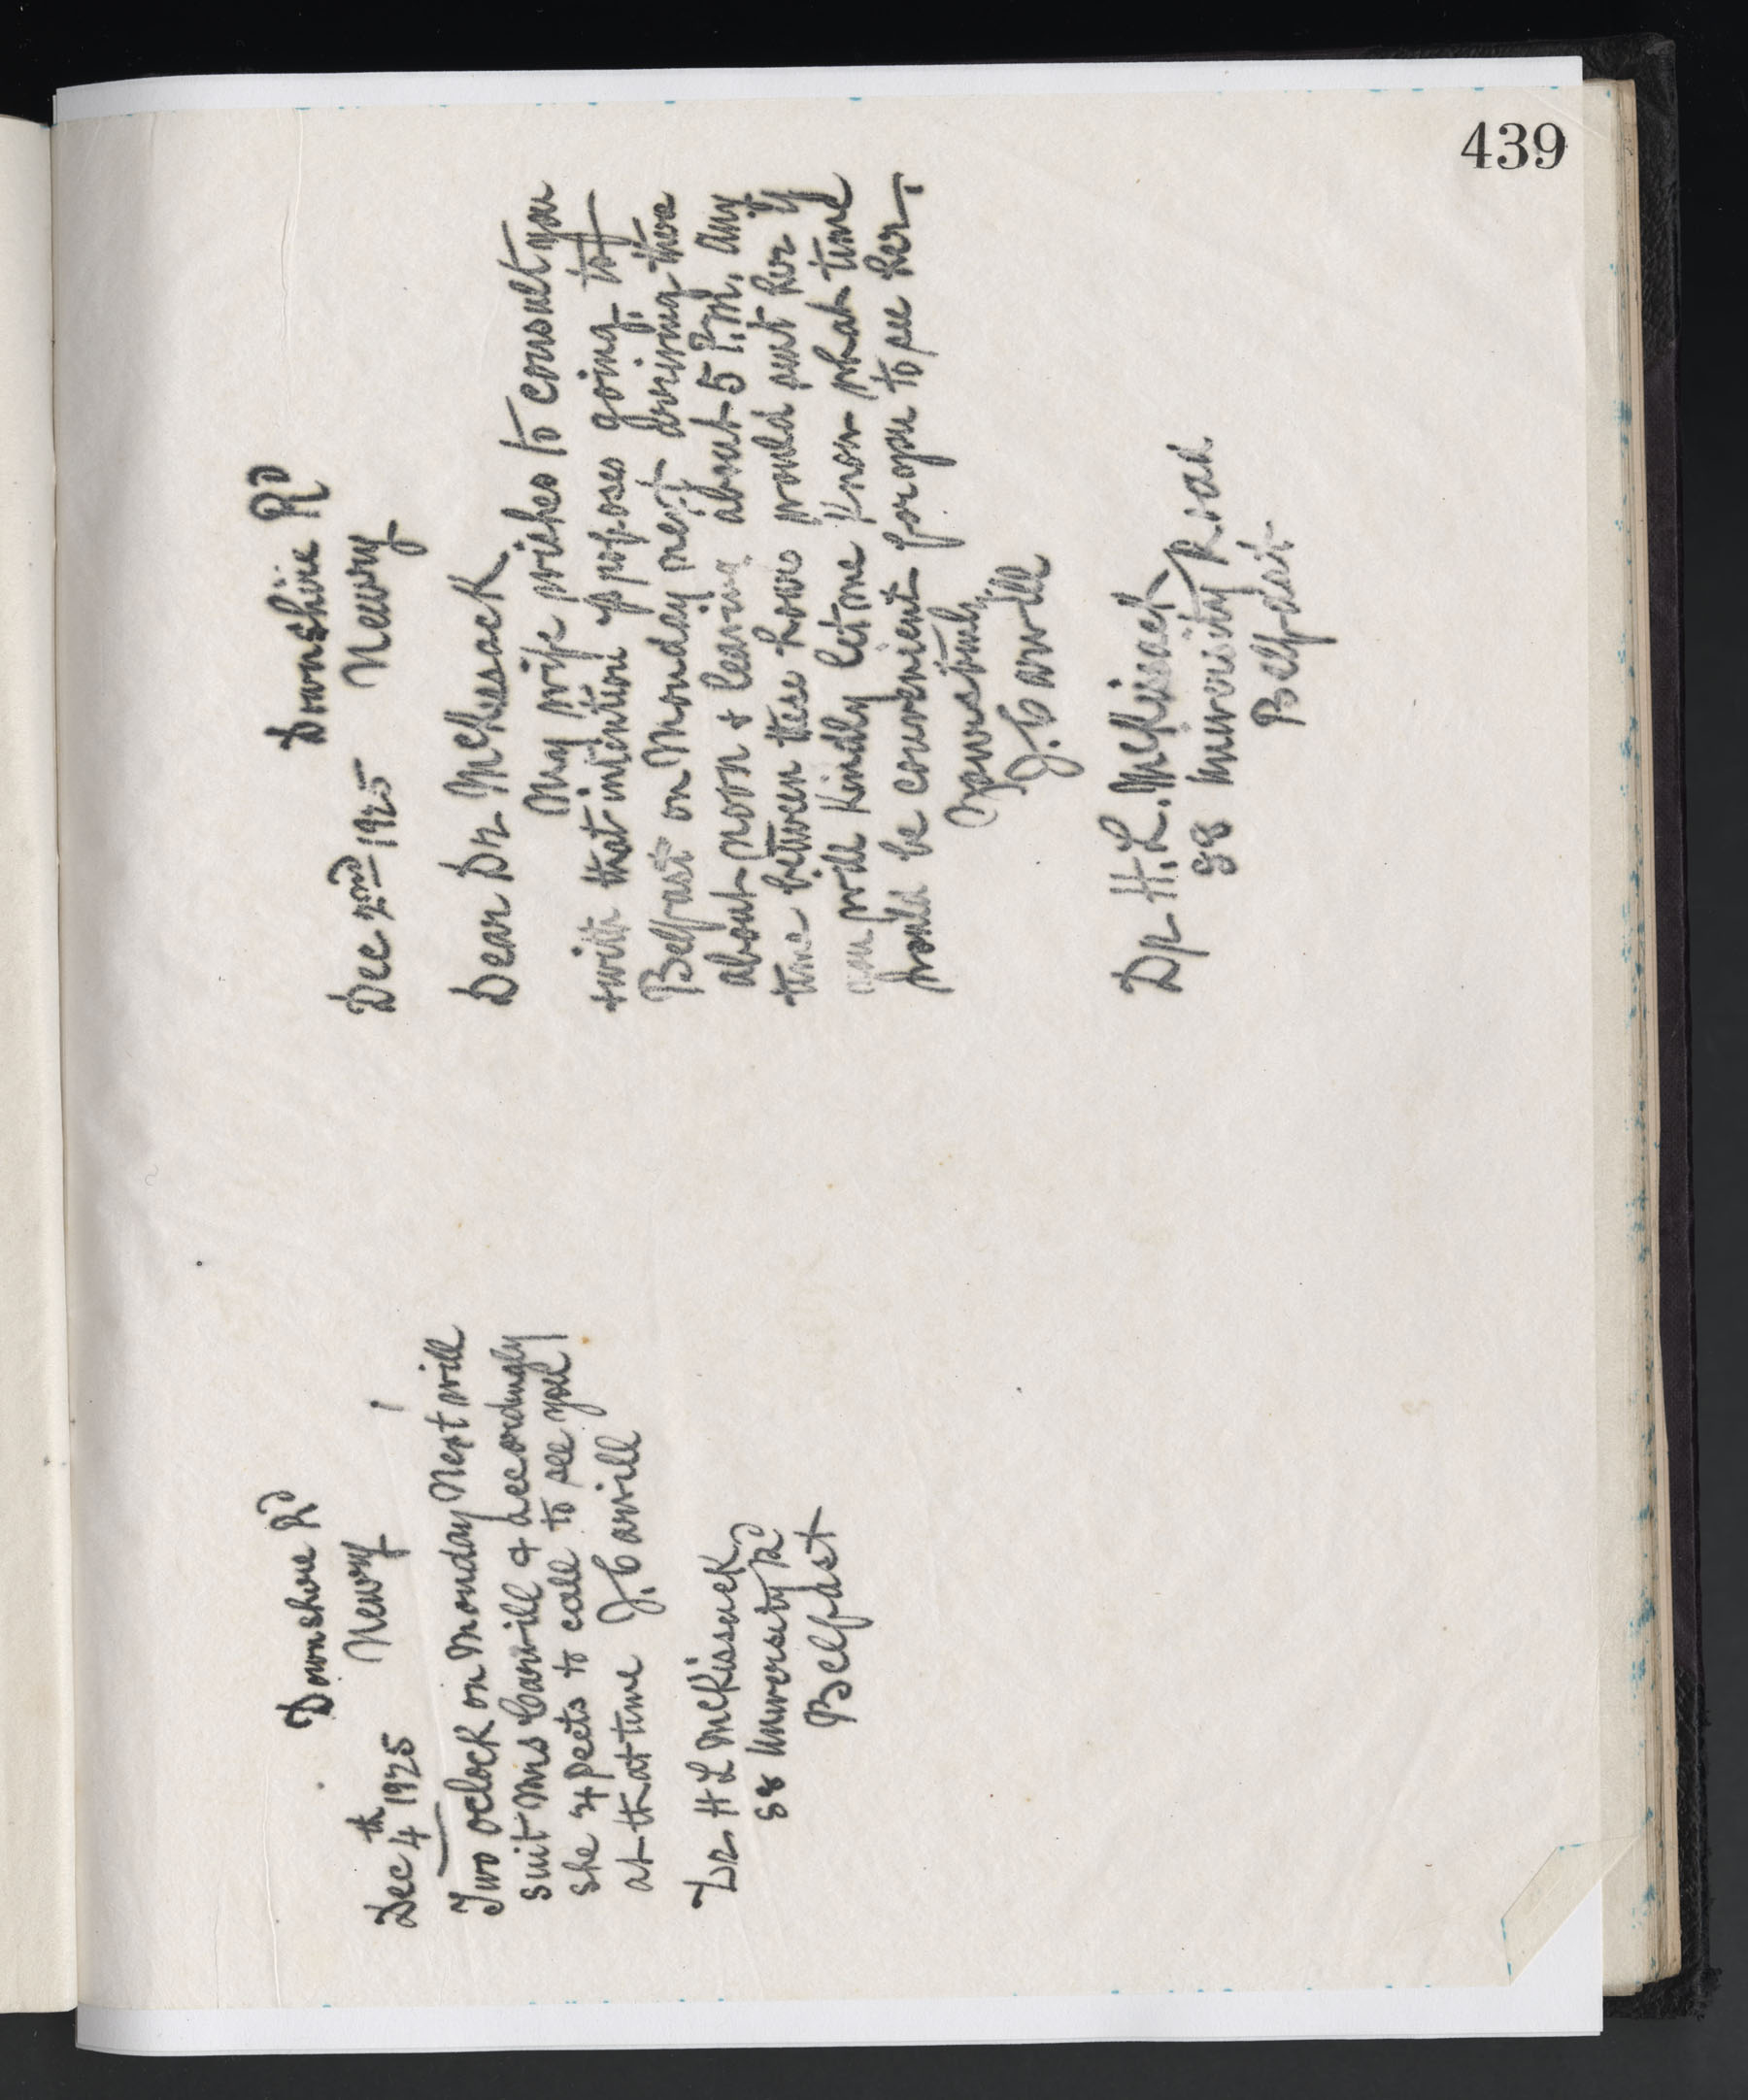 439
Downshire Rd
Dec 2nd 1925 Newry
Dear Dr McKissack
My wife wishes to consult you
& with that intention proposes going to
Belfast on Monday next arriving there
about noon & leaving about 5 P.M. Any
time between these hours would suit her if
you will kindly let me know what time
would be convenient for you to see her
Yours truly
J. Carvill
Dr H. L. McKissack
88 University Road
Belfast
Downshire Rd
Newry
Dec 4th 1925
Two oclock on Monday Next will
suit Mrs Carvill & accordingly
she xpects to call to see you
at that time J. Carvill
Dr H L McKissack
88 University Rd
Belfast